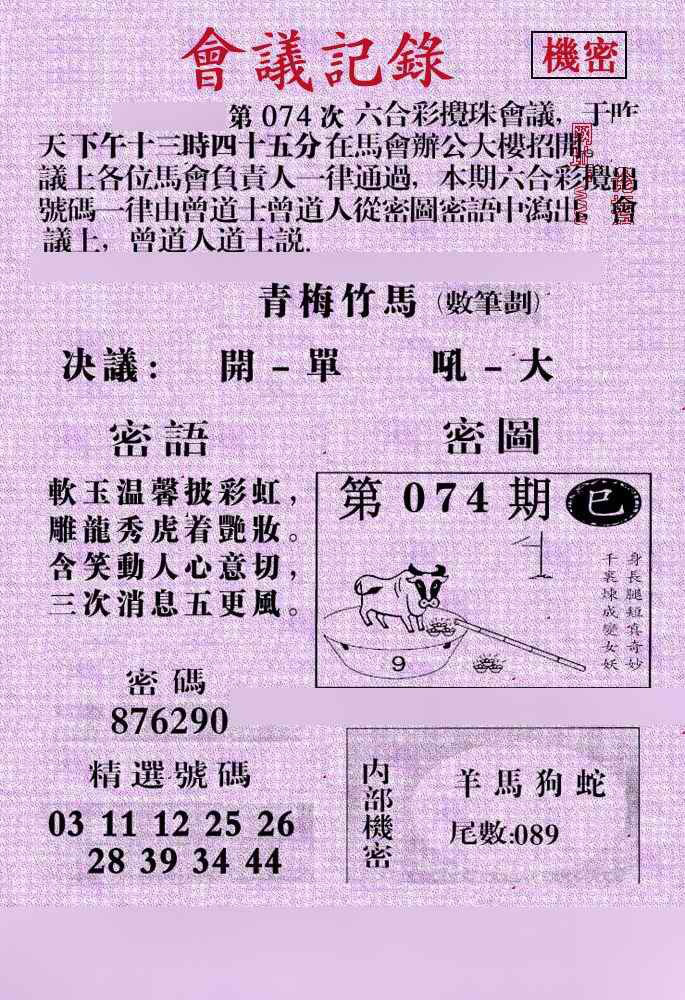 會議記錄
機密
第 074 次 六合彩攪珠會議，于昨
天下午十三時四十五分在馬會辦公大樓招開
議上各位馬會負責人一律通過，本期六合彩攪出
號碼一律由曾道士曾道人從密圖密語中瀉出。會
議上，曾道人道士説.
青梅竹馬（數筆劃）
决議： 開－單 吼－大
密語
軟玉温馨披彩虹，
雕龍秀虎着艷妝。
含笑動人心意切，
三次消息五更風。
密圖
第 074 期 巳
身長腿短真奇妙
千裏煉成變女妖
9
密碼
876290
精選號碼
03 11 12 25 26
28 39 34 44
内部機密
羊馬狗蛇
尾數:089